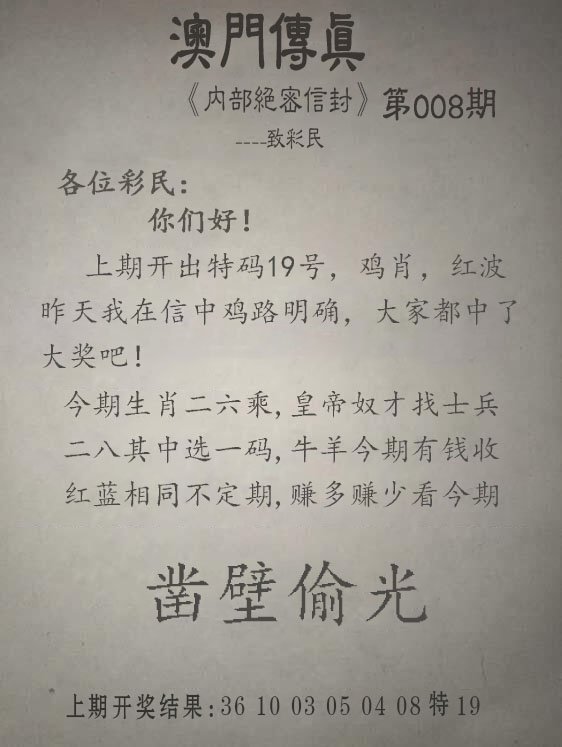 澳門傳真
《内部絕密信封》第008期
----致彩民
各位彩民:
你们好!
上期开出特码19号, 鸡肖, 红波
昨天我在信中鸡路明确, 大家都中了
大奖吧!
今期生肖二六乘, 皇帝奴才找士兵
二八其中选一码, 牛羊今期有钱收
红蓝相同不定期, 赚多赚少看今期
凿壁偷光
上期开奖结果: 36 10 03 05 04 08 特 19